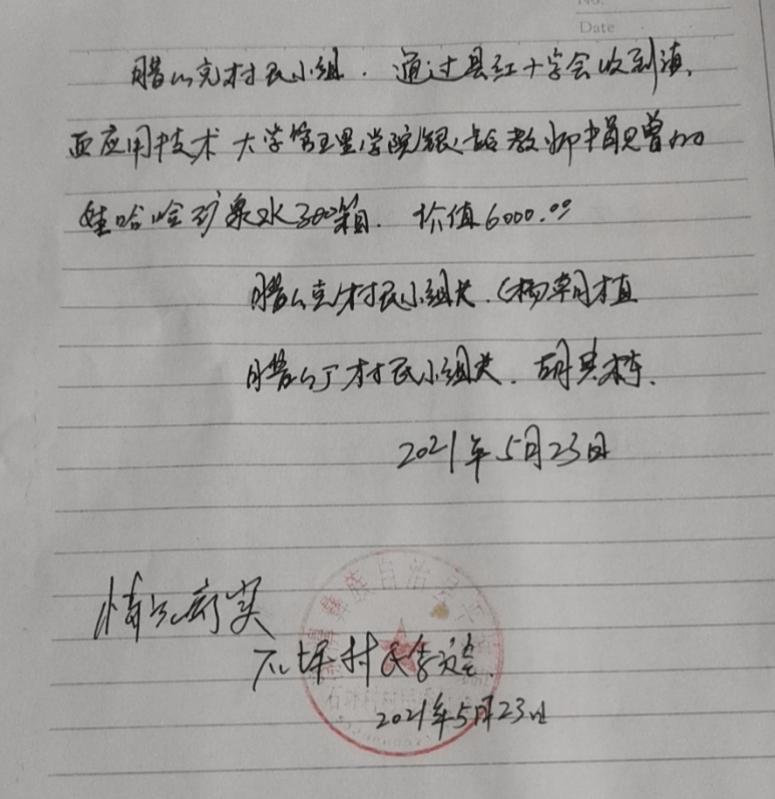 No.
Date
腊山克村民小组.通过县红十字会收到滇
西应用技术大学管理学院银龄教师捐赠的
娃哈哈矿泉水300箱.价值6000.00
村民小组长.(杨朝植
村民小组长.胡其栋.
2021年5月23日
情况属实
石坪村民
2021年5月23日
彝族自治县平